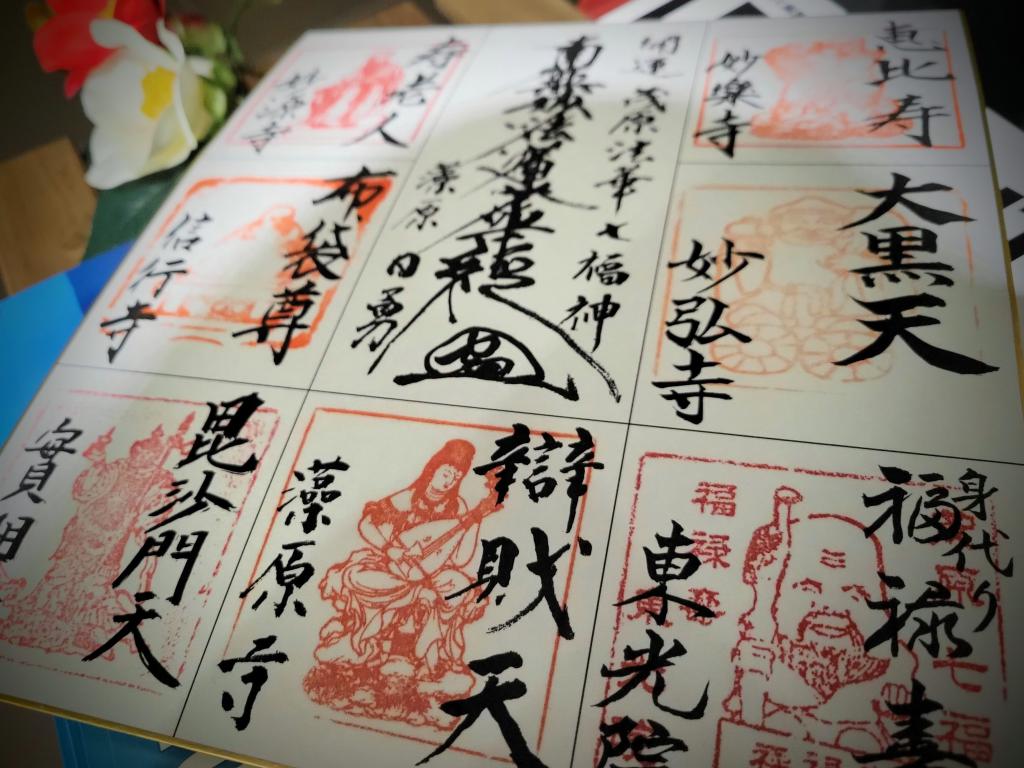 恵比寿
妙楽寺
開運 茂原法華七福神
南無妙法蓮華経
藻原
日勇
寿老人
妙源寺
大黒天
妙弘寺
布袋尊
信行寺
身代り
福禄寿
東光院
福禄寿
辯財天
藻原寺
毘沙門天
實相